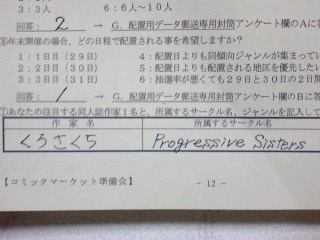 3：3人　6：6人～10人
回答： 2 → G．配置用データ郵送専用封筒アンケート欄のAに
③年末開催の場合、どの日程で配置される事を希望しますか？
1：1日目（29日）　4：配置日よりも同傾向ジャンルが集まってい
2：2日目（30日）　5：配置日よりも配置される地区を優先したい
3：3日目（31日）　6：抽選率が悪くても29日と30日の2日間
回答： 1 → G．配置用データ郵送専用封筒アンケート欄のBに答
①あなたの注目する同人誌作家1名と、所属するサークル名、ジャンルを記入して
作　家　名　所属するサークル名
くろさくち　Progressive Sisters
【コミックマーケット準備会】　- 12 -